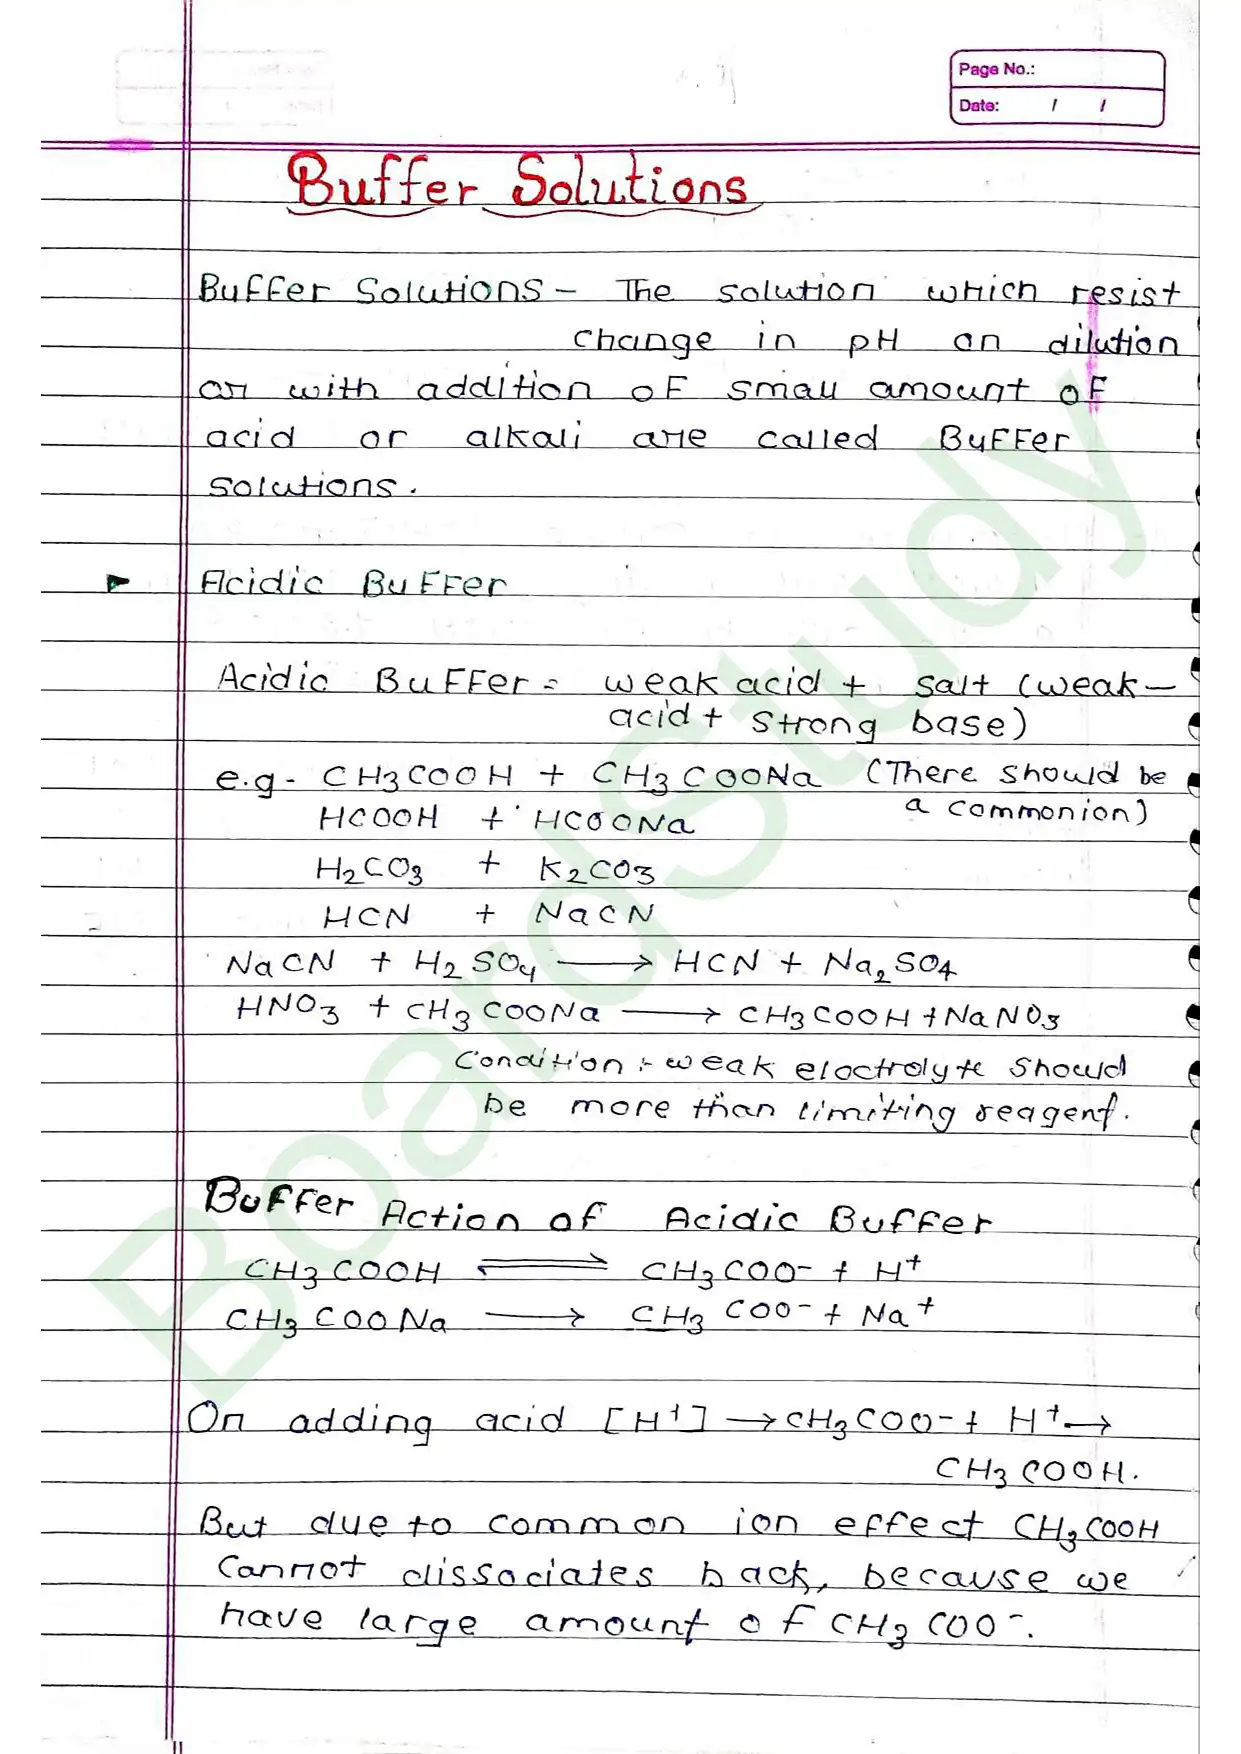 Page No.:
Date: / /
Buffer Solutions
Buffer Solutions - The solution which resist
change in pH on dilution
or with addition of small amount of
acid or alkali are called Buffer
solutions.
Acidic Buffer
Acidic Buffer = weak acid + salt (weak-
acid + strong base)
e.g - CH3COOH + CH3COONa (There should be
a commonion)
HCOOH + HCOONa
H2CO3 + K2CO3
HCN + NaCN
NaCN + H2SO4 → HCN + Na2SO4
HNO3 + CH3COONa → CH3COOH + NaNO3
Condition :- weak eloctrolyte should
be more than limiting reagent.
Buffer Action of Acidic Buffer
CH3COOH ⇌ CH3COO- + H+
CH3COONa → CH3COO- + Na+
On adding acid [H+] → CH3COO- + H+ →
CH3COOH.
But due to common ion effect CH3COOH
Cannot dissociates back, because we
have large amount of CH3COO-.
BoardStudy